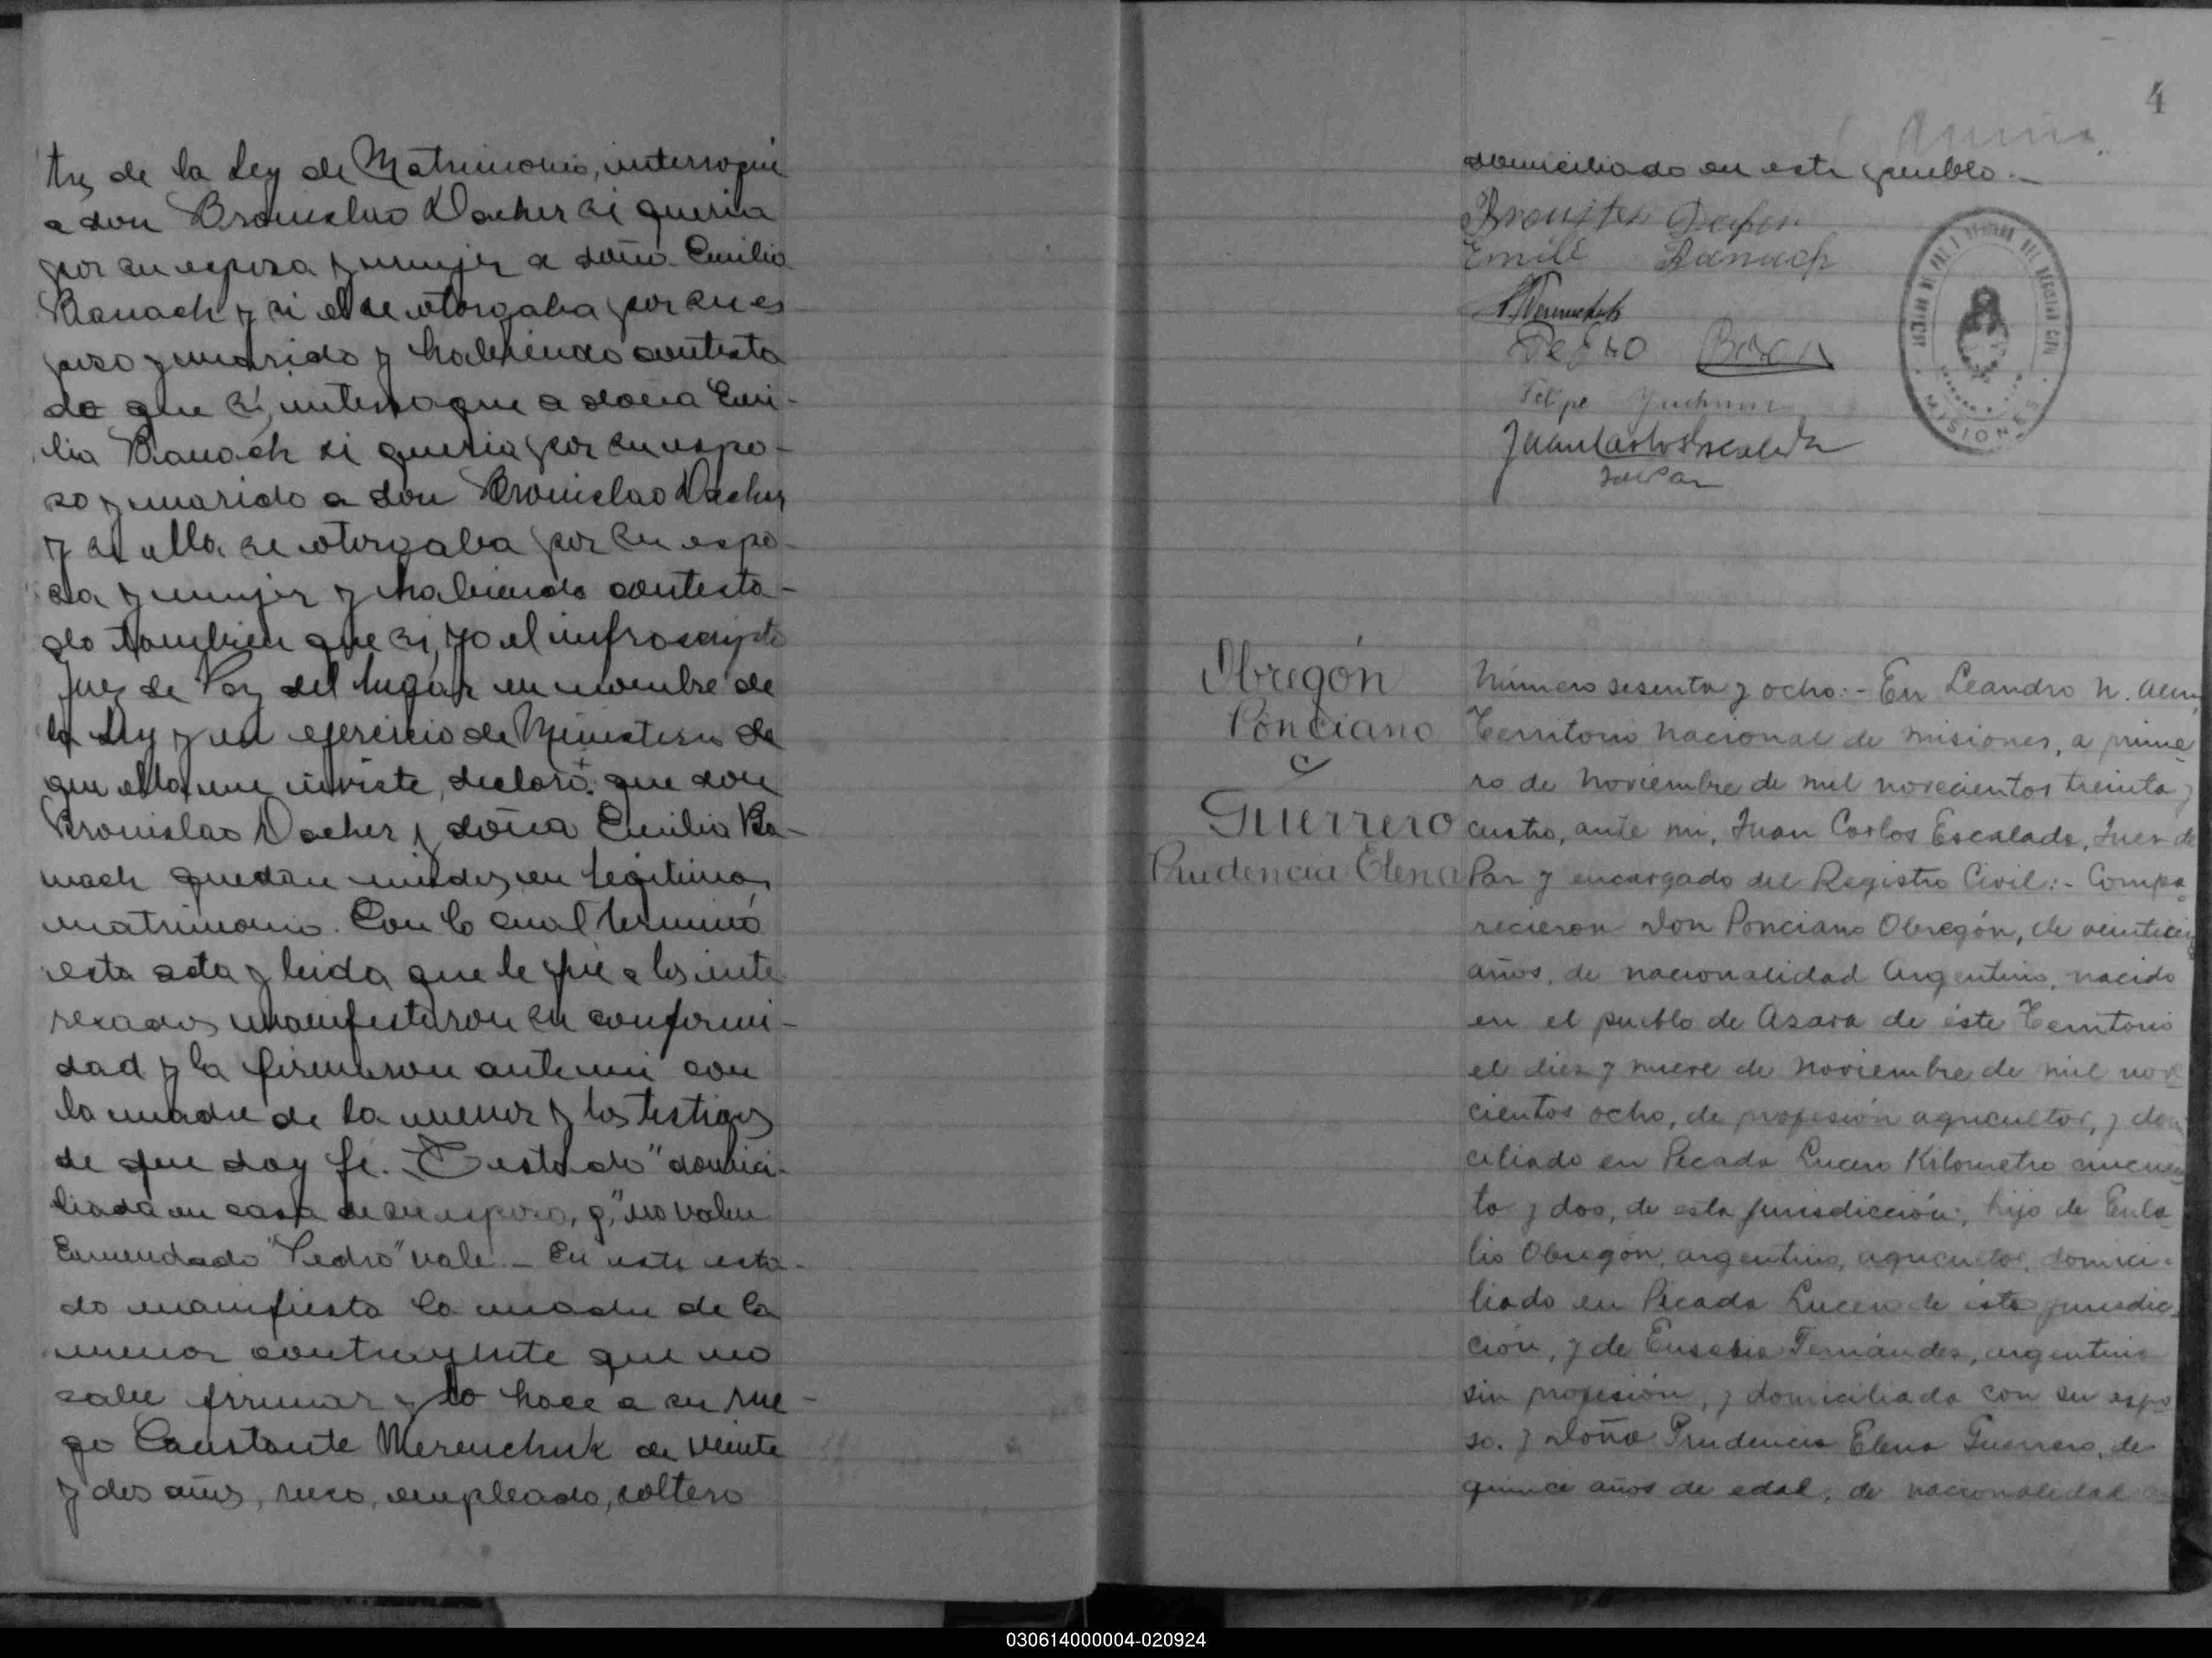 tres de la Ley de Matrimonio, interrogué
a don Bronislao Dacher si queria
por su esposa y mujer a doña Emilia
Banach y si el se otorgaba por su es
poso y marido y habiendo contesta
do que si, interrogue a doña Emi-
lia Banach si queria por su espo-
so y marido a don Bronislao Dacher
y si ella se otorgaba por su espo-
sa y mujer y habiendo contesta-
do tambien que si, yo el infrascripto
Juez de Paz del lugar en nombre de
la Ley y en ejercicio de Ministerio de
que ella me inviste, declaro: que don
Bronislao Dacher y doña Emilia Ba-
nach quedan unidos en legitimo
matrimonio. Con lo cual terminó
esta acta y leida que le fué a los inte
resados manifestaron su conformi-
dad y la firmaron ante mi con
la madre de la menor y los testigos
de que doy fé. Testado "domici-
liada en casa de su esposo, y," no valen
Enmendado "Pedro" vale. - En este esta-
do manifiesta la madre de la
menor contrayente que no
sabe firmar y lo hace a su rue-
go Constante Merenchuk de veinte
y dos años, ruso, empleado, soltero
4
domiciliado en este pueblo.-
Emilie Banach
Pedro
Felipe
Juan Carlos Escalada
Juez Paz
MISIONES
Obregón
Ponciano
c/
Guerrero
Prudencia Elena
Número sesenta y ocho:- En Leandro N. Alem,
Territorio Nacional de Misiones, a prime
ro de Noviembre de mil novecientos treinta y
cuatro, ante mi, Juan Carlos Escalada, Juez de
Paz y encargado del Registro Civil:- Compa
recieron Don Ponciano Obregón, de
años, de nacionalidad Argentino, nacido
en el pueblo de Azara de éste Territorio
el diez y nueve de Noviembre de mil nove
cientos ocho, de profesión agricultor, y domi
ciliado en Picada Lucero Kilometro cincuen
ta y dos, de esta jurisdicción; hijo de Eula
lio Obregón, argentino, agricultor, domici-
liado en Picada Lucero de ésta jurisdic
ción, y de Eusebia Fernández, argentina
sin profesión, y domiciliada con su espo
so. y Doña Prudencia Elena Guerrero, de
quince años de edad, de nacionalidad
030614000004-020924